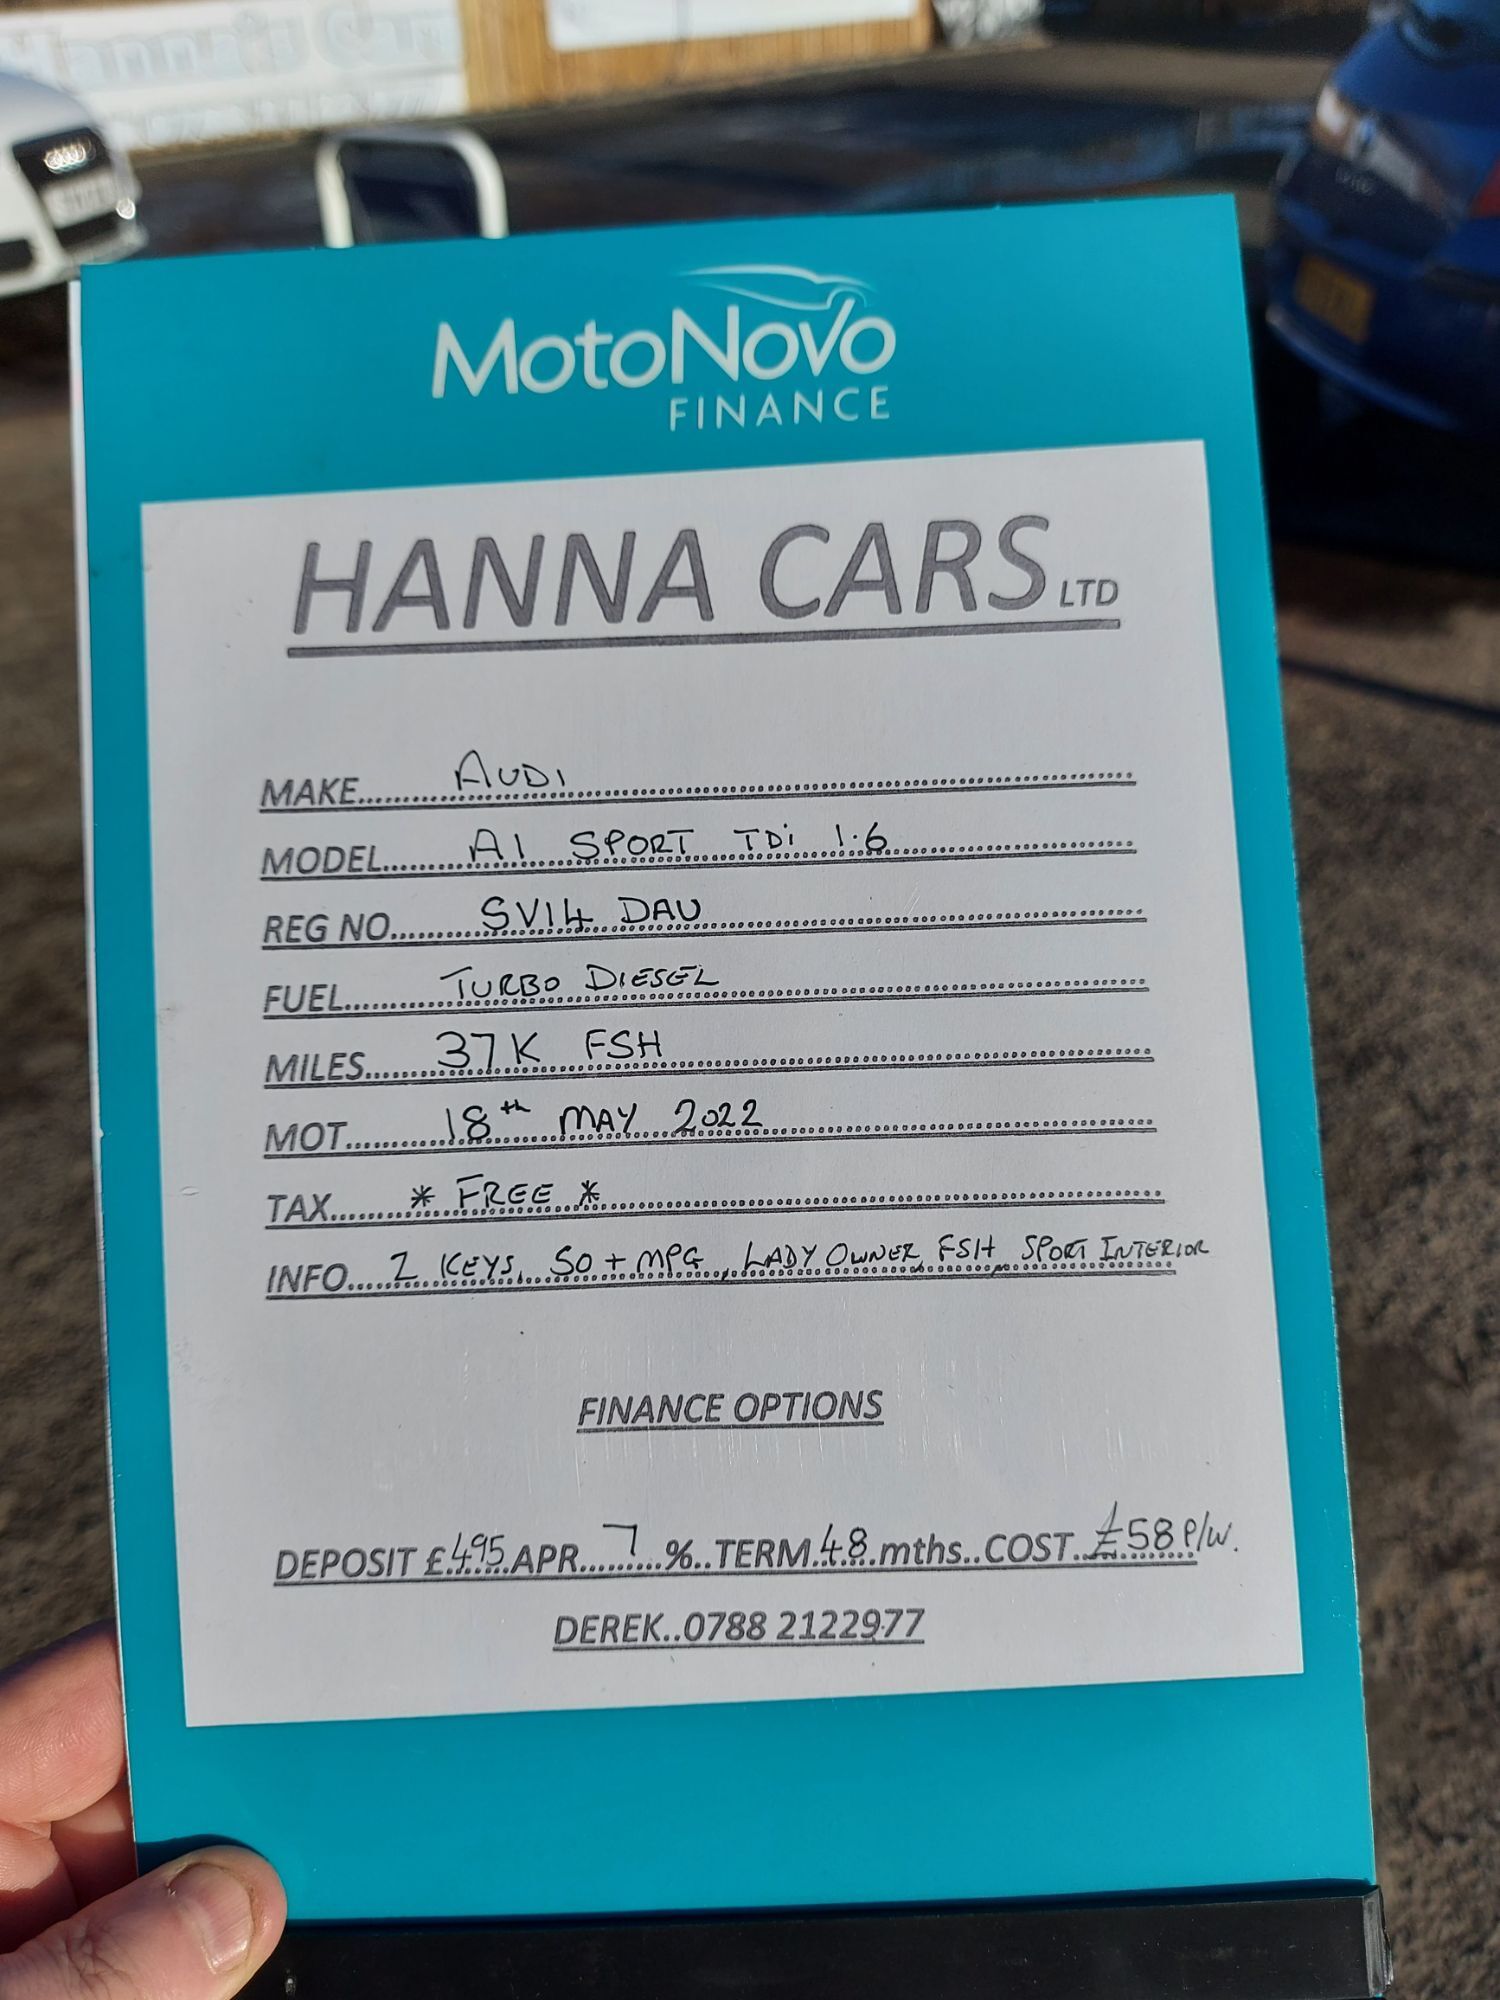 Hanna's Cars
MotoNovo
FINANCE
HANNA CARS LTD
MAKE AUDI
MODEL A1 SPORT TDi 1.6
REG NO SV14 DAU
FUEL TURBO DIESEL
MILES 37K FSH
MOT 18th MAY 2022
TAX * FREE *
INFO 2 KEYS, 50+MPG, LADY OWNER, FSH, SPORT INTERIOR
FINANCE OPTIONS
DEPOSIT £495 APR 7 % TERM 48 mths COST £58 P/W.
DEREK..0788 2122977